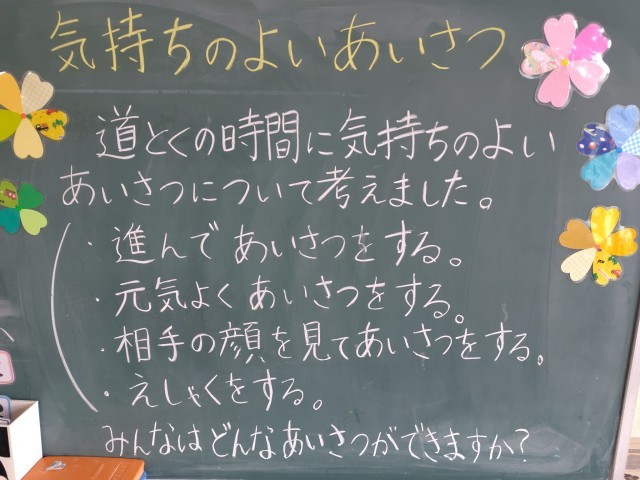 気持ちのよいあいさつ
道とくの時間に気持ちのよい
あいさつについて考えました。
・進んであいさつをする。
・元気よくあいさつをする。
・相手の顔を見てあいさつをする。
・えしゃくをする。
みんなはどんなあいさつができますか?